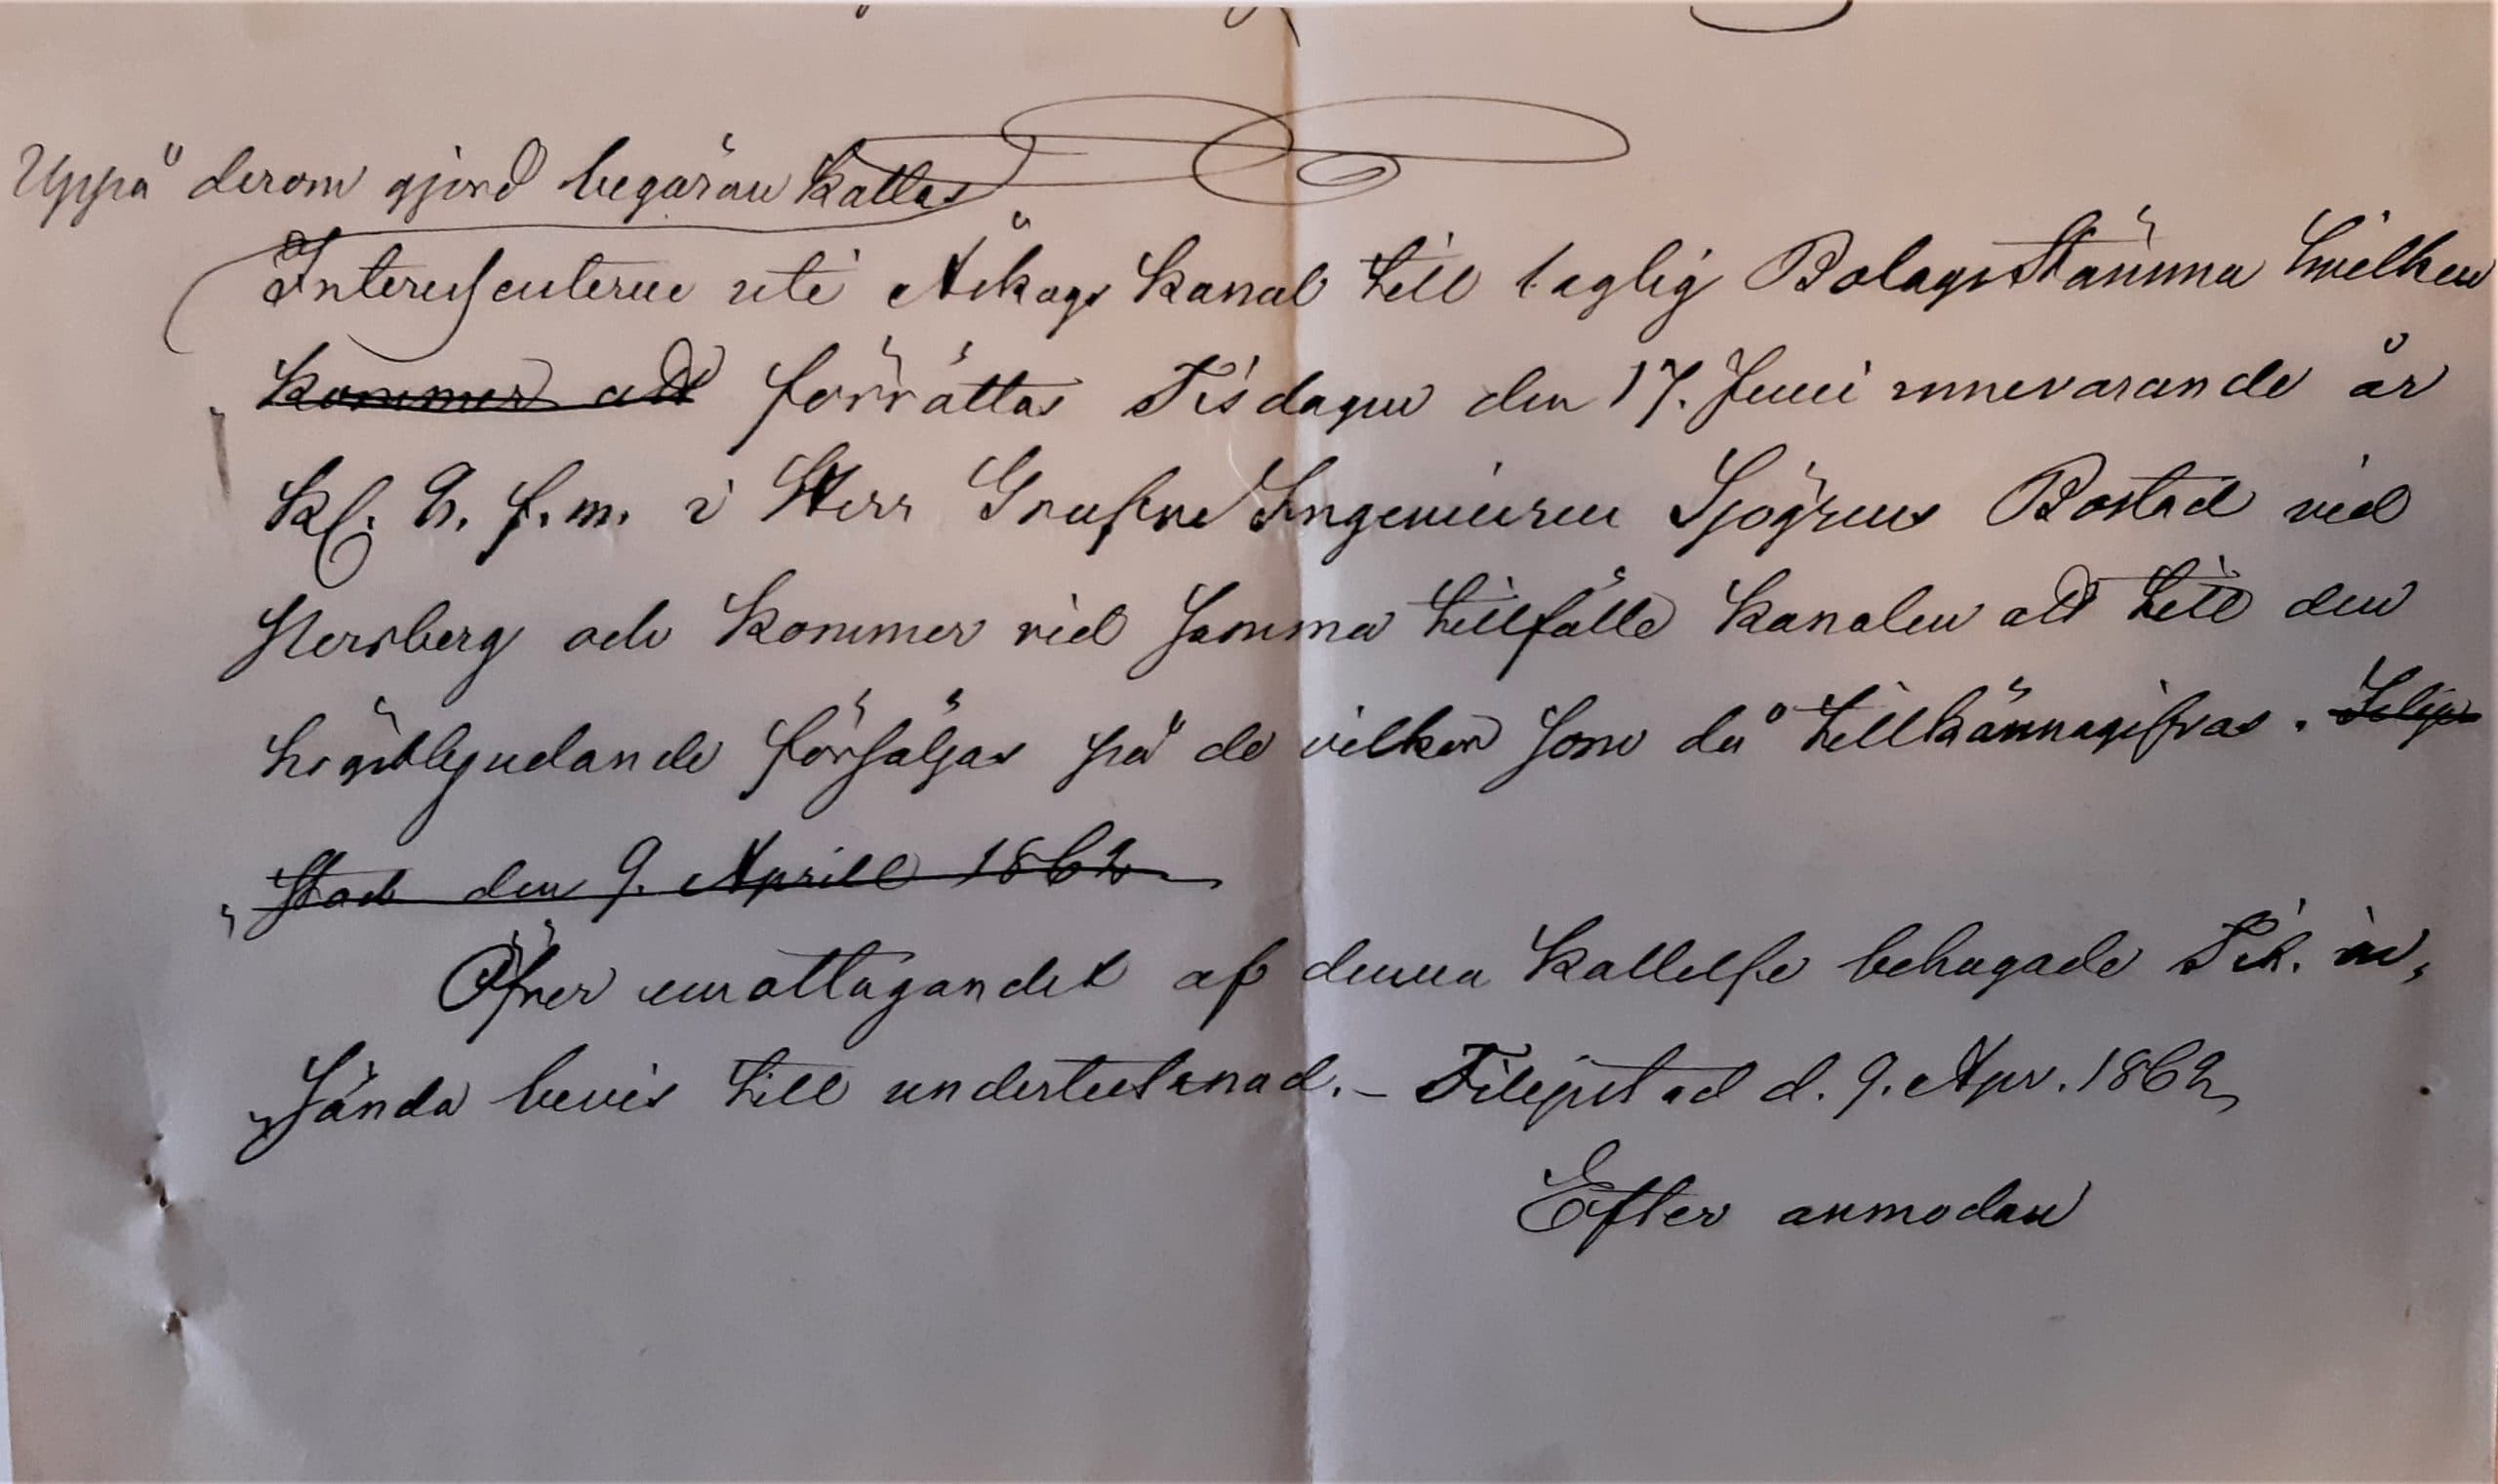 Uppå derom gjord begäran kallas
Interessenterne uti Åskags kanal till laglig Bolags Stämma hvilken
kommer att förrättas Tisdagen den 17. Juni innevarande år
Kl. 9. f.m. i Herr Grufve Ingenieuren Sjögrens Bostad vid
Persberg och kommer vid samma tillfälle kanalen att till den
högstbjudande försäljas på de vilkor som då tillkännagifvas. Filip
stad den 9. Aprill 1862
Öfver emottagandet af denna kallelse behagade in,
sända bevis till undertecknad. – Filipstad d. 9. Apr. 1862,
Efter anmodan